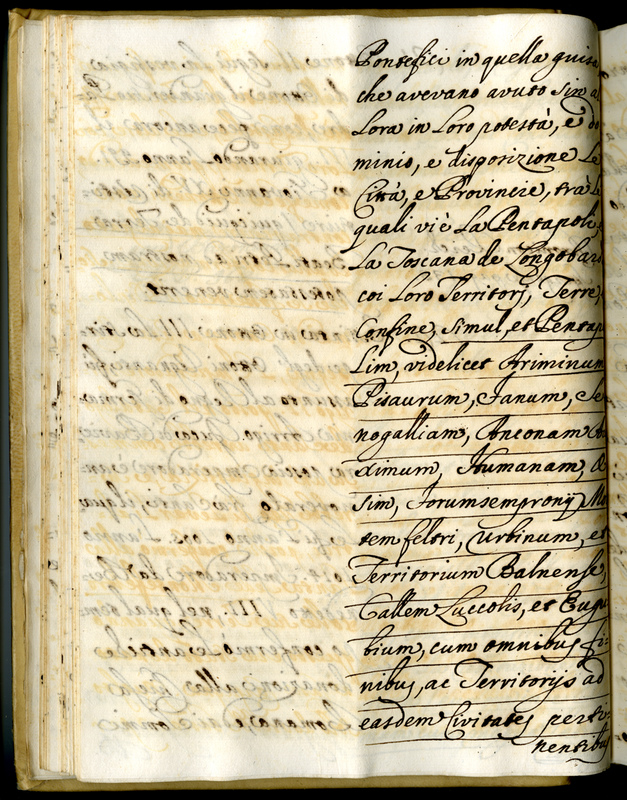 Pontefici in quella guisa
che avevano avuto sin a
Lora in Loro potestà, e do
minio, e disposizione Le
Città, e Provincie, trà Le
quali vi è La Pentapoli,
La Toscana de Longobar
coi Loro Territorj, Terre,
Confine, simul, et Pentap
Lim, videlicet Ariminum
Pisaurum, Fanum, Se
nogalliam, Anconam
ximum, Humanam,
sim, Forumsempronij Mo
temfeltri, Urbinum, et
Territorium Balnense,
Callem Luceolis, et Eugu
bium, cum omnibus fi=
nibus, ac Territorijs ad
easdem Civitates perti
nentibus